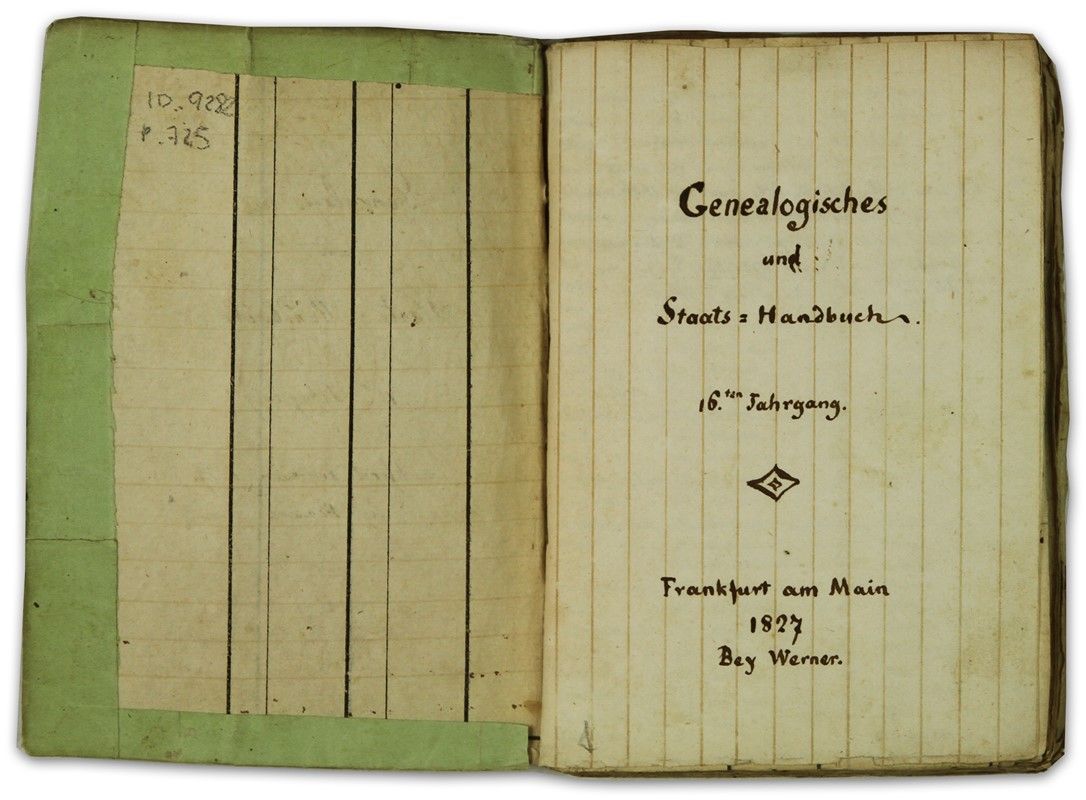 ID. 9282
P. 725
Genealogisches
und
Staats = Handbuch.
16.ten Jahrgang.
Frankfurt am Main
1827
Bey Werner.